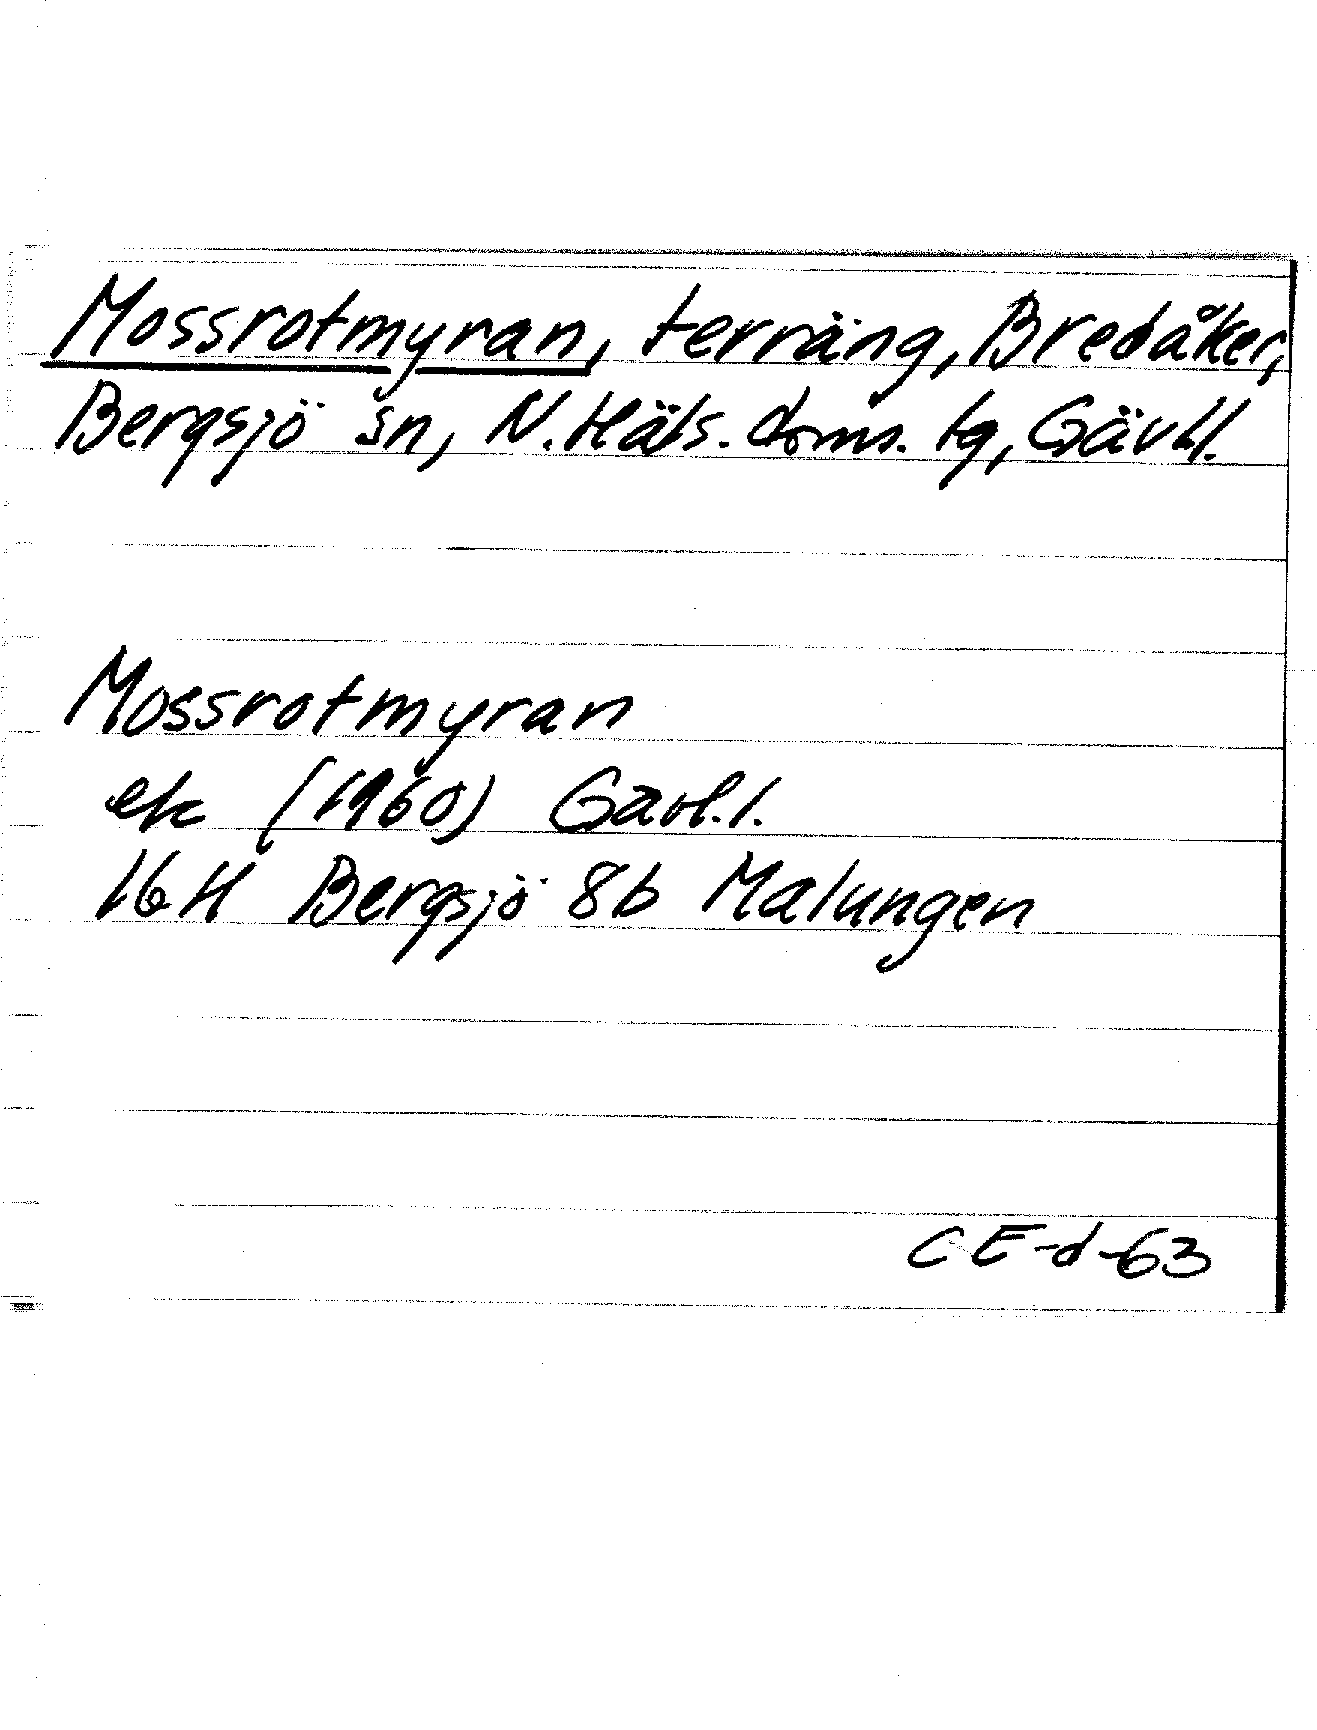 Mossrotmyran, terräng, Bredåker,
Bergsjö sn, N. Häls. doms. tg, Gävl.l.
Mossrotmyran
ek (1960) Gävl.l.
16H Bergsjö 8b Malungen
CE-d-63